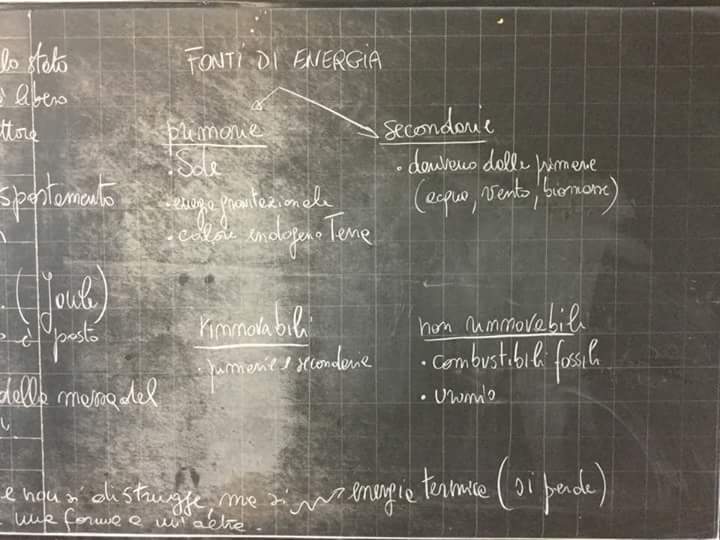 lo stato
è libero
ttore
spostamento
. (Joule)
o è posto
della massa del
FONTI DI ENERGIA
primarie
• Sole
• energia gravitazionale
• calore endogeno Terra
secondarie
• derivano dalle primarie
(acqua, vento, biomasse)
rinnovabili
• primarie e secondarie
non rinnovabili
• combustibili fossili
• uranio
e non si distrugge ma si energia termica (si perde)
una forma a un'altra.